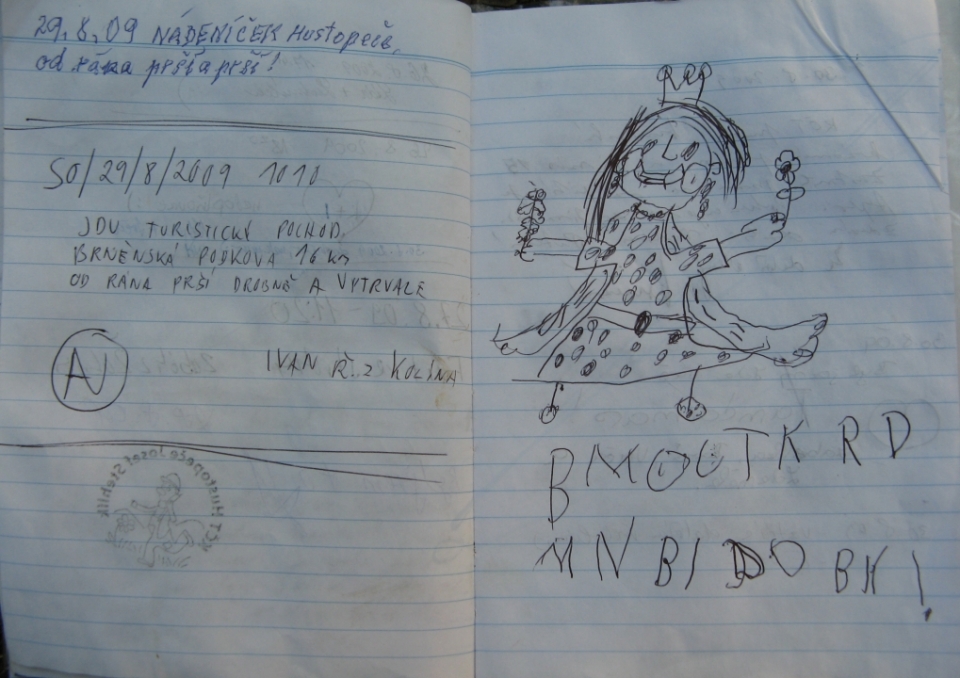 29.8.09 NÁDENÍČEK Hustopeče,
od rána prší a prší!
SO/29/8/2009 1010
JDU TURISTICKÝ POCHOD
BRNĚNSKÁ PODKOVA 16 km
OD RÁNA PRŠÍ DROBNĚ A VYTRVALE
IVAN Ř. Z KOLÍNA
KČT Hustopeče Josef Stehlík
BMOUTK RD
MN BI DO BK!